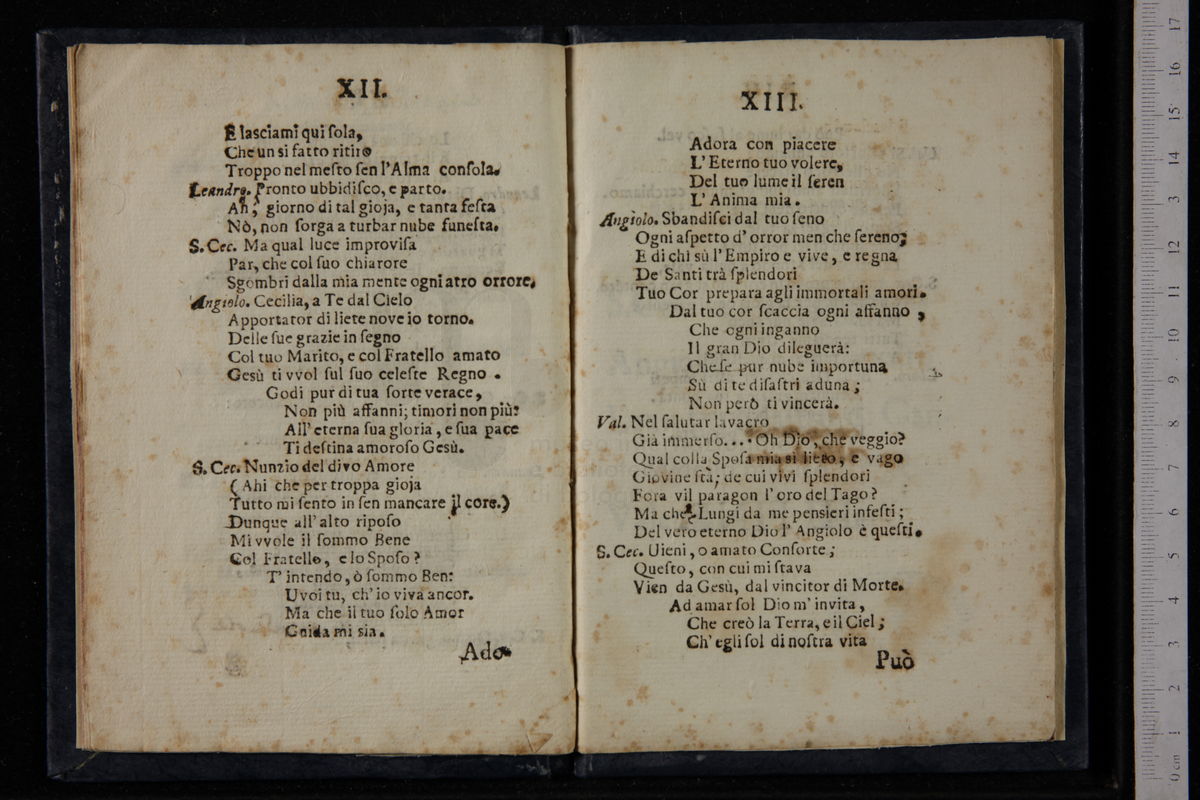 XII.
E lasciami qui ſola,
Che un si fatto ritiro
Troppo nel meſto ſen l'Alma conſola.
Leandro. Pronto ubbidiſco, e parto.
Ah, giorno di tal gioja, e tanta feſta
Nò, non ſorga a turbar nube funeſta.
S. Cec. Ma qual luce improviſa
Par, che col ſuo chiarore
Sgombri dalla mia mente ogni atro orrore.
Angiolo. Cecilia, a Te dal Cielo
Apportator di liete nove io torno.
Delle ſue grazie in ſegno
Col tuo Marito, e col Fratello amato
Gesù ti vvol ſul ſuo celeſte Regno .
Godi pur di tua ſorte verace,
Non più affanni; timori non più:
All' eterna ſua gloria, e ſua pace
Ti deſtina amoroſo Gesù.
S. Cec. Nunzio del divo Amore
( Ahi che per troppa gioja
Tutto mi ſento in ſen mancare il core.)
Dunque all' alto ripoſo
Mi vvole il ſommo Bene
Col Fratello, e lo Spoſo ?
T' intendo, ò ſommo Ben:
Uvoi tu, ch' io viva ancor.
Ma che il tuo ſolo Amor
Guida mi sia.
Ado-
XIII.
Adora con piacere
L' Eterno tuo volere,
Del tuo lume il ſeren
L' Anima mia.
Angiolo. Sbandiſci dal tuo ſeno
Ogni aſpetto d' orror men che ſereno;
E di chi sù l' Empiro e vive, e regna
De Santi trà ſplendori
Tuo Cor prepara agli immortali amori.
Dal tuo cor ſcaccia ogni affanno ,
Che ogni inganno
Il gran Dio dileguerà:
Che ſe pur nube importuna
Sù di te diſaſtri aduna ;
Non però ti vincerà.
Val. Nel ſalutar lavacro
Già immerſo.... Oh Dio, che veggio?
Qual colla Spoſa mia si lieto, e vago
Giovine ſtà; de cui vivi ſplendori
Fora vil paragon l' oro del Tago?
Ma che? Lungi da me pensieri infeſti ;
Del vero eterno Dio l' Angiolo è queſti.
S. Cec. Uieni, o amato Conſorte ;
Queſto, con cui mi ſtava
Vien da Gesù, dal vincitor di Morte.
Ad amar ſol Dio m' invita ,
Che creò la Terra, e il Ciel ;
Ch' egli ſol di noſtra vita
Può
17
16
15
14
13
12
11
10
9
8
7
6
5
4
3
2
1
0 cm